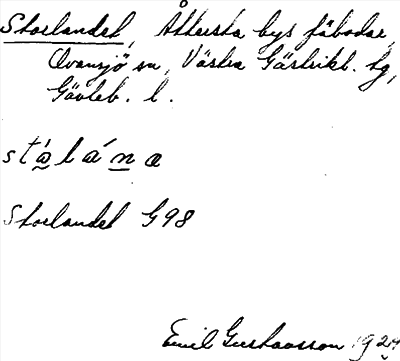 Storlandet, Åttersta bys fäbodar,
Ovansjö sn, Västra Gästrikl. hg,
Gävleb. l.
Storlandet G98
Emil Gustavsson 192